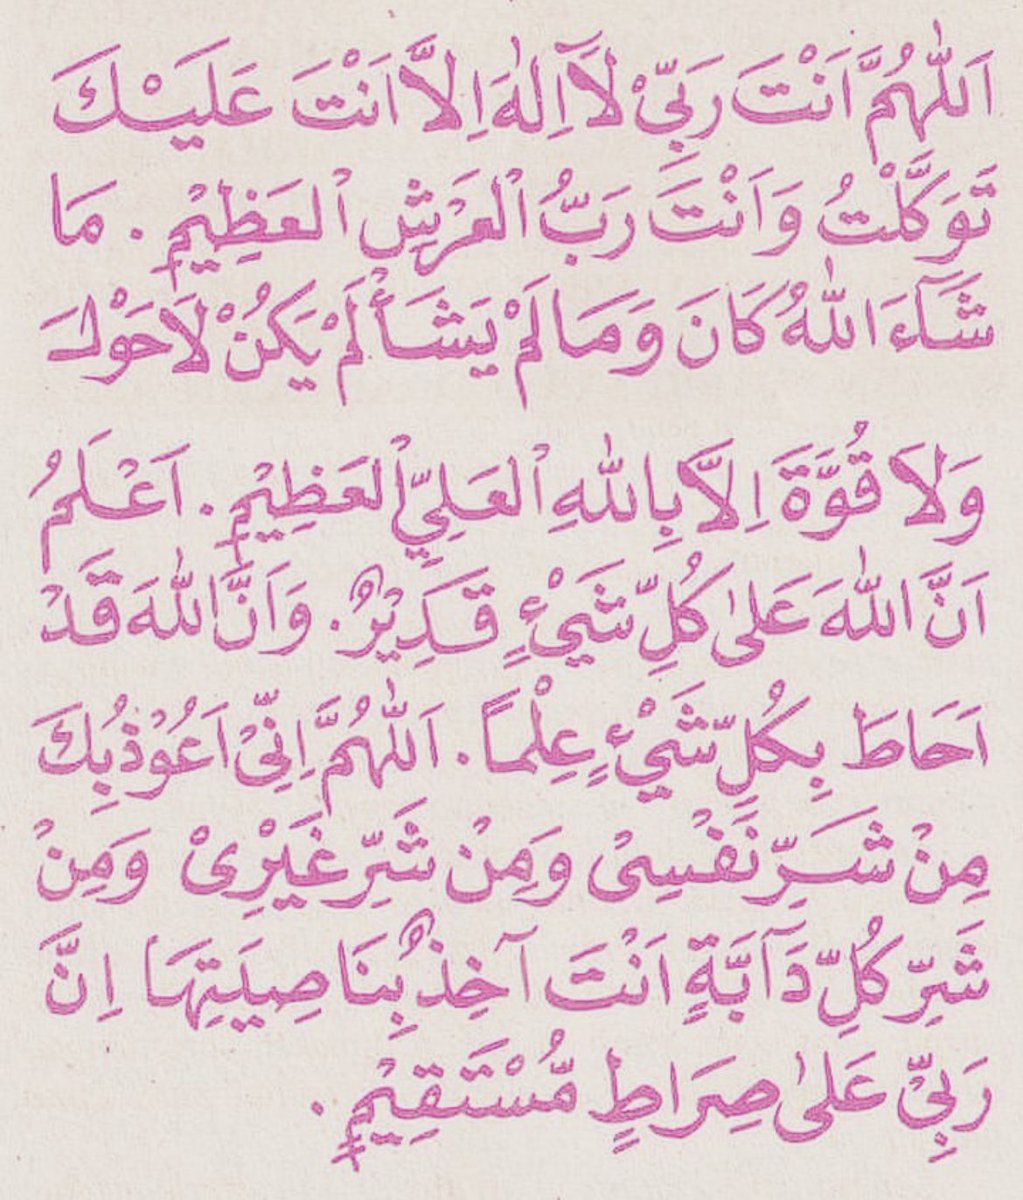 اَللّٰهُمَّ اَنْتَ رَبِّيْ لَآ اِلٰهَ اِلاَّ اَنْتَ عَلَيْكَ
تَوَكَّلْتُ وَاَنْتَ رَبُّ الْعَرْشِ الْعَظِيْمِ. مَا
شَآءَ اللّٰهُ كَانَ وَمَا لَمْ يَشَأْ لَمْ يَكُنْ لَاحَوْلَ
وَلَا قُوَّةَ اِلاَّ بِاللّٰهِ الْعَلِيِّ الْعَظِيْمِ. اَعْلَمُ
اَنَّ اللّٰهَ عَلىٰ كُلِّ شَيْءٍ قَدِيْرٌ. وَاَنَّ اللّٰهَ قَدْ
اَحَاطَ بِكُلِّ شَيْءٍ عِلْمًا. اَللّٰهُمَّ اِنِّيْ اَعُوْذُبِكَ
مِنْ شَرِّ نَفْسِىْ وَمِنْ شَرِّ غَيْرِىْ وَمِنْ
شَرِّ كُلِّ دَآبَّةٍ اَنْتَ آخِذٌ بِنَاصِيَتِهَا اِنَّ
رَبِّيْ عَلىٰ صِرَاطٍ مُّسْتَقِيْمٍ.